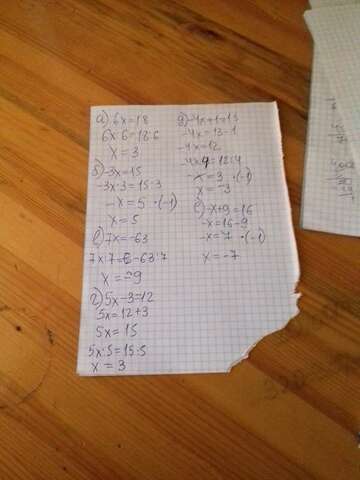 а) 6x=18
6x:6=18:6
x=3
б) -3x=15
-3x:3=15:3
-x=5 ·(-1)
x=5
в) 7x=-63
7x:7=-63:7
x=-9
г) 5x-3=12
5x=12+3
5x=15
5x:5=15:5
x=3
д) -4x+1=13
-4x=13-1
-4x=12
-4x:4=12:4
-x=3 ·(-1)
x=-3
е) -x+9=16
-x=16-9
-x=7 ·(-1)
x=-7